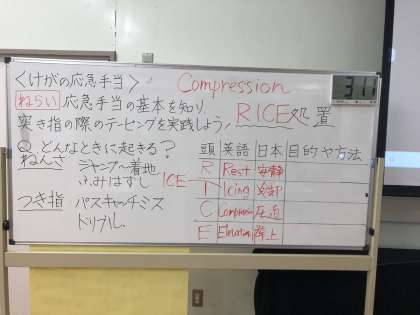 ＜けがの応急手当＞ Compression
ねらい 応急手当の基本を知り
突き指の際のテーピングを実践しよう！ RICE処置
Q どんなときに起きる？
ねんざ ジャンプ～着地
ふみはずし
つき指 パスキャッチミス
ドリブル
ICE
頭 英語 日本 目的や方法
R Rest 安静
I Icing 冷却
C Compression 圧迫
E Elevation 挙上